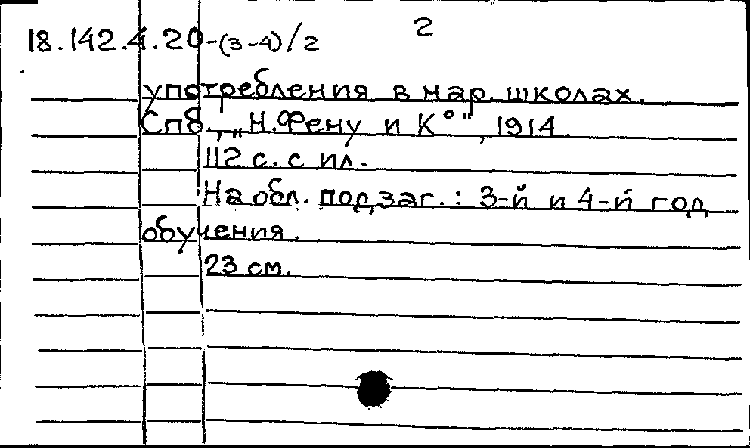 18.142.4.20-(3-4)/2
2
употребления в нар. школах.
Спб., „Н. Фену и К°", 1914.
112 с. с ил.
На обл. подзаг.: 3-й и 4-й год
обучения.
23 см.